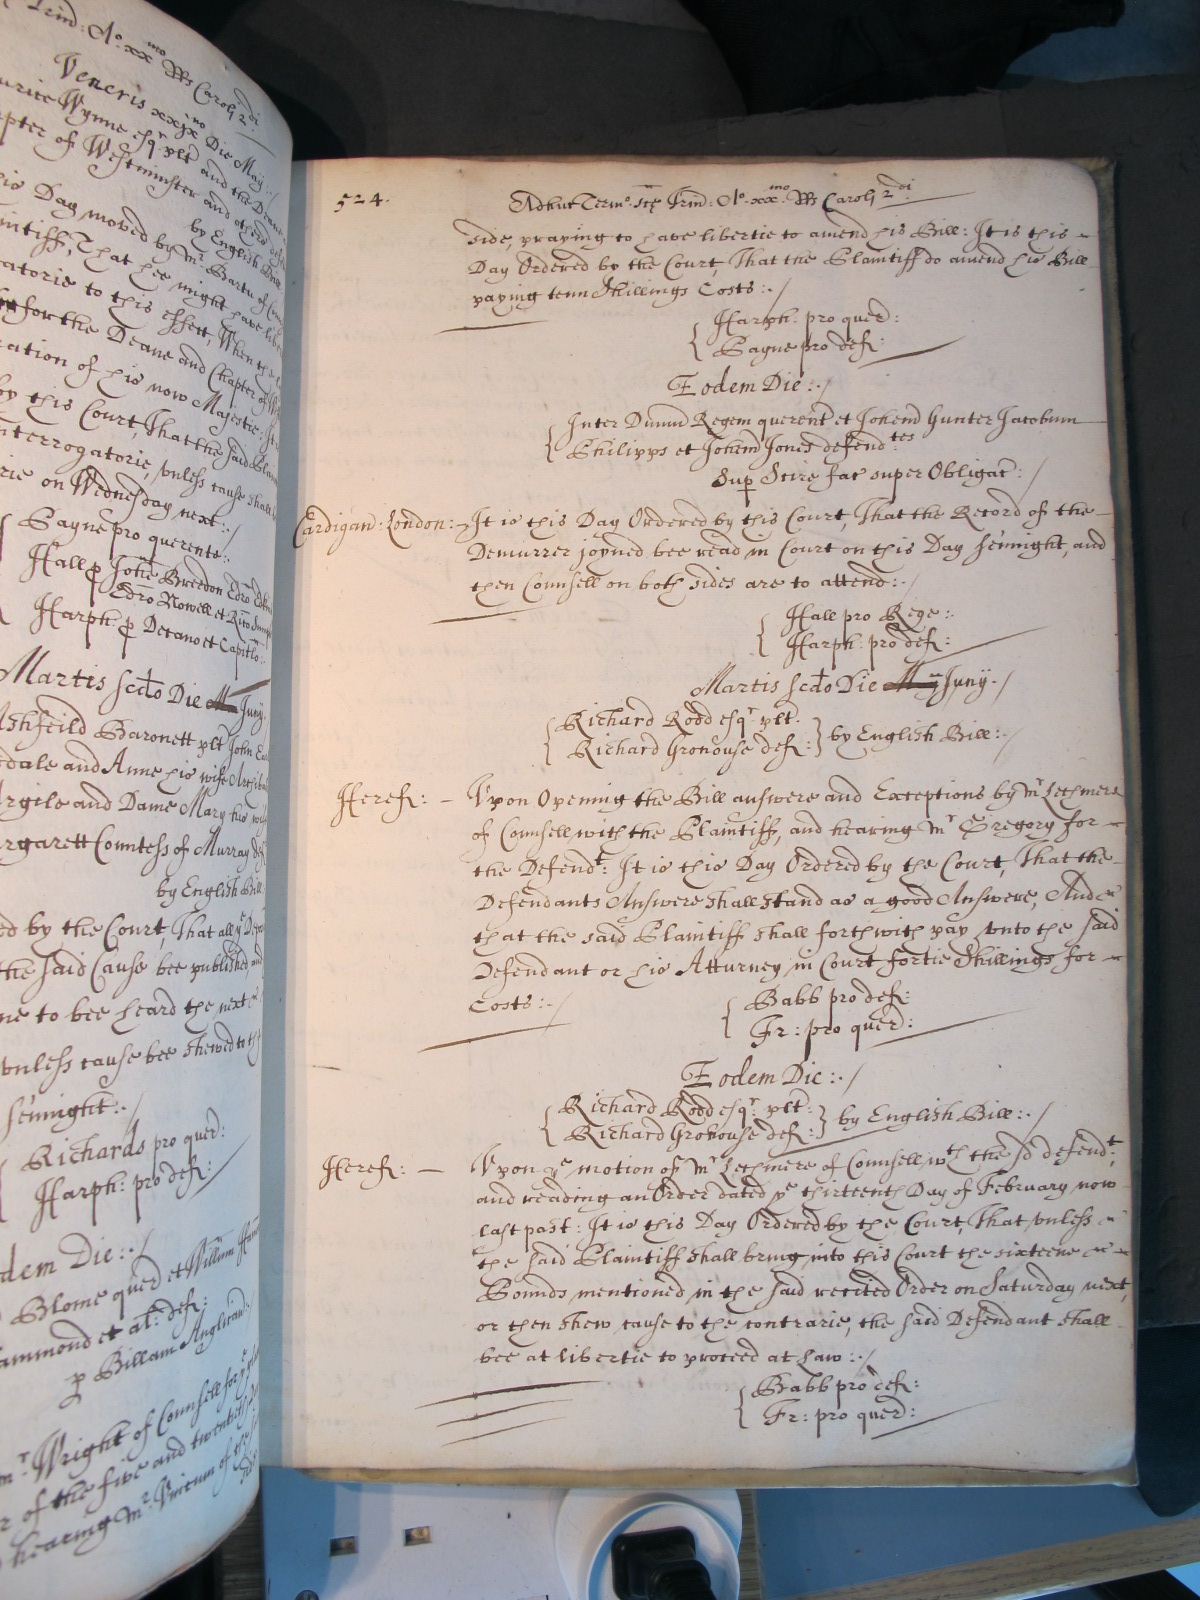 Trin: Ao. xxmo Rs Carolj 2di
Veneris xxixno Die May:/
Wynne esqr. plt and the Deane
of Westminster and others
by English
Day moved by mr. Bartu of
That hee might have
to this effect, When
for the Deane and Chapter of
of his now Majestie:
by this Court, That the said
Interrogatorie, unless cause shall
on Wednesday next:/
Sayne pro querente:.
Hall p Johe Breedon Edro
Edro Nowell et
Harph: p Decano et Capitlo:.
Martis scdo Die M Juny.
Baronett plt John
and Anne his wife
Argile and Dame Mary his
Margarett Countess of Murray
by English Bill
by the Court, That all ye
the said Cause bee published and
to bee heard the next
unless cause bee shewed to the
sennight:./
Richards pro quer:
Harph: pro def:
Eodem Die:./
Blome quer et Willum
Hammond et al: def:
p Billam Anglican:
mr. Wright of Counsell for ye
of the five and twentieth
hearing mr.
524.
Adhuc Termo. Sce Trin: Ao. xxmo. Rs Carolj 2di:
side, praying to have libertie to amend his Bill: It is this
Day Ordered by the Court, That the Plaintiff do amend his Bill
paying tenn Shillings Costs:./
Harph: pro quer:
Sayne pro def:
Eodem Die:./
Inter Dnum Regem querent et Johem Gunter Jacobum
Philipps et Johem Jones defendtes
Sup Scire fac super Obligac:/
Cardigan: London:- It is this Day Ordered by this Court, That the Record of the
Demurrer joyned bee read in Court on this Day sennight, and
then Counsell on both sides are to attend:./
Hall pro Rege:.
Harph: pro def:
Martis scdo Die May Juny./
Richard Rodd esqr. plt.
Richard Gronouse def: } by English Bill:./
Heref: - Upon Opening the Bill answere and Exceptions by mr Letchmere
of Counsell with the Plaintiff, and hearing mr Gregory for
the Defendt: It is this Day Ordered by the Court, That the
Defendants Answere shall stand as a good Answere, And
that the said Plaintiff shall forthwith pay unto the said
Defendant or his Atturney in Court fortie Shillings for
Costs:./
Babb pro def:
Fr: pro quer:
Eodem Die:./
Richard Rodd esqr. plt:
Richard Gronouse def: } by English Bill:./
Heref: - Upon ye motion of mr Letchmere of Counsell wth the sd defendt,
and reading an Order dated ye thirteenth Day of February now
last past: It is this Day Ordered by the Court, That unless
the said Plaintiff shall bring into this Court the sixteene
Pounds mentioned in the said recited Order on Saturday next,
or then shew cause to the contrarie, the said Defendant shall
bee at libertie to proceed at Law:./
Babb pro def:
Fr: pro quer: